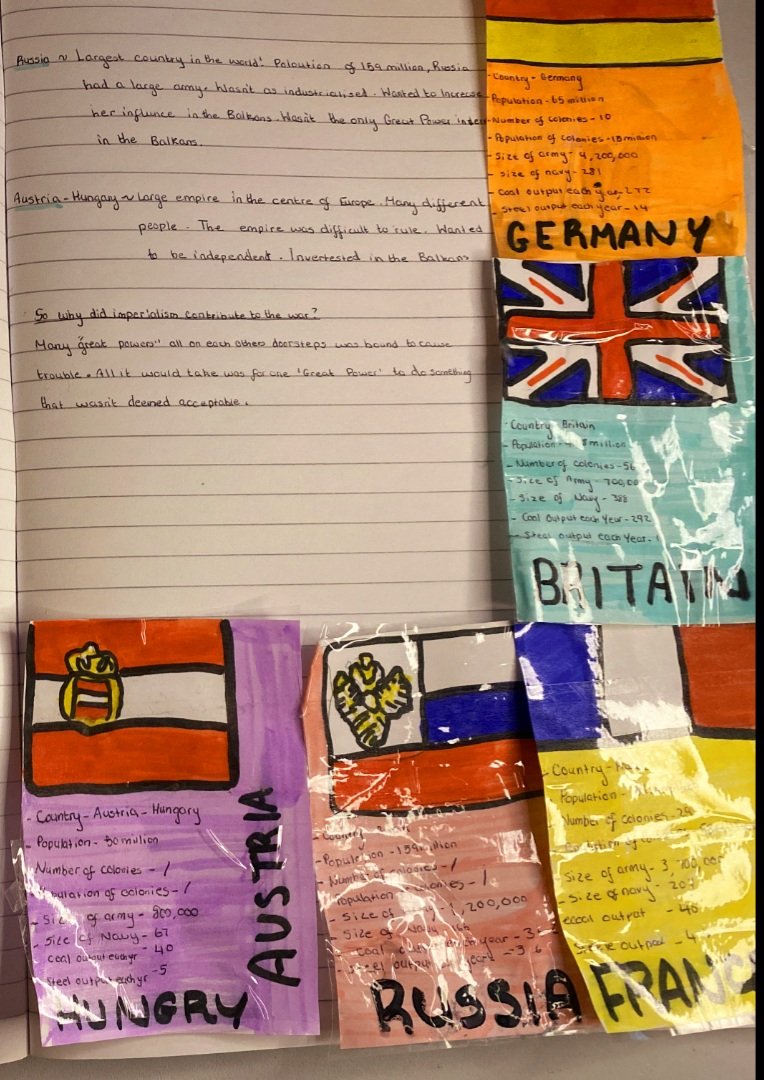 Russia ~ Largest country in the world! Poloution of 159 million, Russia
had a large army. Wasnt as industrialised. Wanted to Increase
her influnce in the Balkans. Wasn't the only Great Power
in the Balkans.
Austria-Hungary ~ Large empire in the centre of Europe. Many different
people. The empire was difficult to rule. Wanted
to be independent. Invertested in the Balkans
So why did imperialism contribute to the war?
Many "great powers" all on each others doorsteps was bound to cause
trouble. All it would take was for one 'Great Power' to do something
that wasn't deemed acceptable.
- Country - Germany
Population - 65 million
- Number of colonies - 10
- Population of colonies - 15 million
- Size of army - 4,200,000
- Size of navy - 281
- Coal output each year - 272
- Steel output each year - 14
GERMANY
- Country Britain
- Population million
- Number of colonies - 56
- Size of Army - 700,00
- Size of Navy - 388
- Coal output each Year - 292
- Steel output each Year -
BRITAIN
- Country - Austria - Hungary
Population - 50 million
Number of colonies - /
Population of colonies - /
- Size of army - 800,000
- Size of Navy - 67
coal output each yr - 40
steel output each yr - 5
AUSTRIA
HUNGRY
Country
- Population - 159 million
- Number of colonies - /
Population colonies - /
- Size of 1,200,000
Size of Navy
- Coal year
- Steel output
RUSSIA
Country -
Population -
Number of colonies -
Size of army - 3,700,000
- Size of navy - 207
coal output - 40
Steel output - 4
FRANC